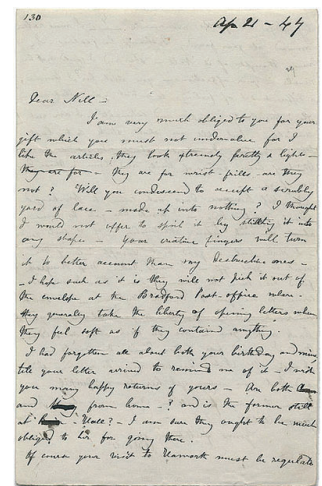 130
Ap 21 – 47
Dear Nell –
I am very much obliged to you for your
gift which you must not undervalue for I
like the articles they look extremely pretty & light –
they are for wrist frills are they
not? Will you condescend to accept a scrubby
yard of lace – made up into nothing? I thought
I would not offer to spoil it by stitching it into
any shape – Your creative fingers will turn
it to better account than my destructive ones –
– I hope such as it is they will not pick it out of
the envelope at the Bradford Post-office where
they generally take the liberty of opening letters when
they feel soft as if they contained anything.
I had forgotten all about both your birthday and mine,
till your letter arrived to remind me of it – I wish
you many happy returns of yours – Are both
and from home – ? and is the former still
at – ? – I am sure they ought to be much
obliged to for going there.
Of course your visit to Haworth must be regulated